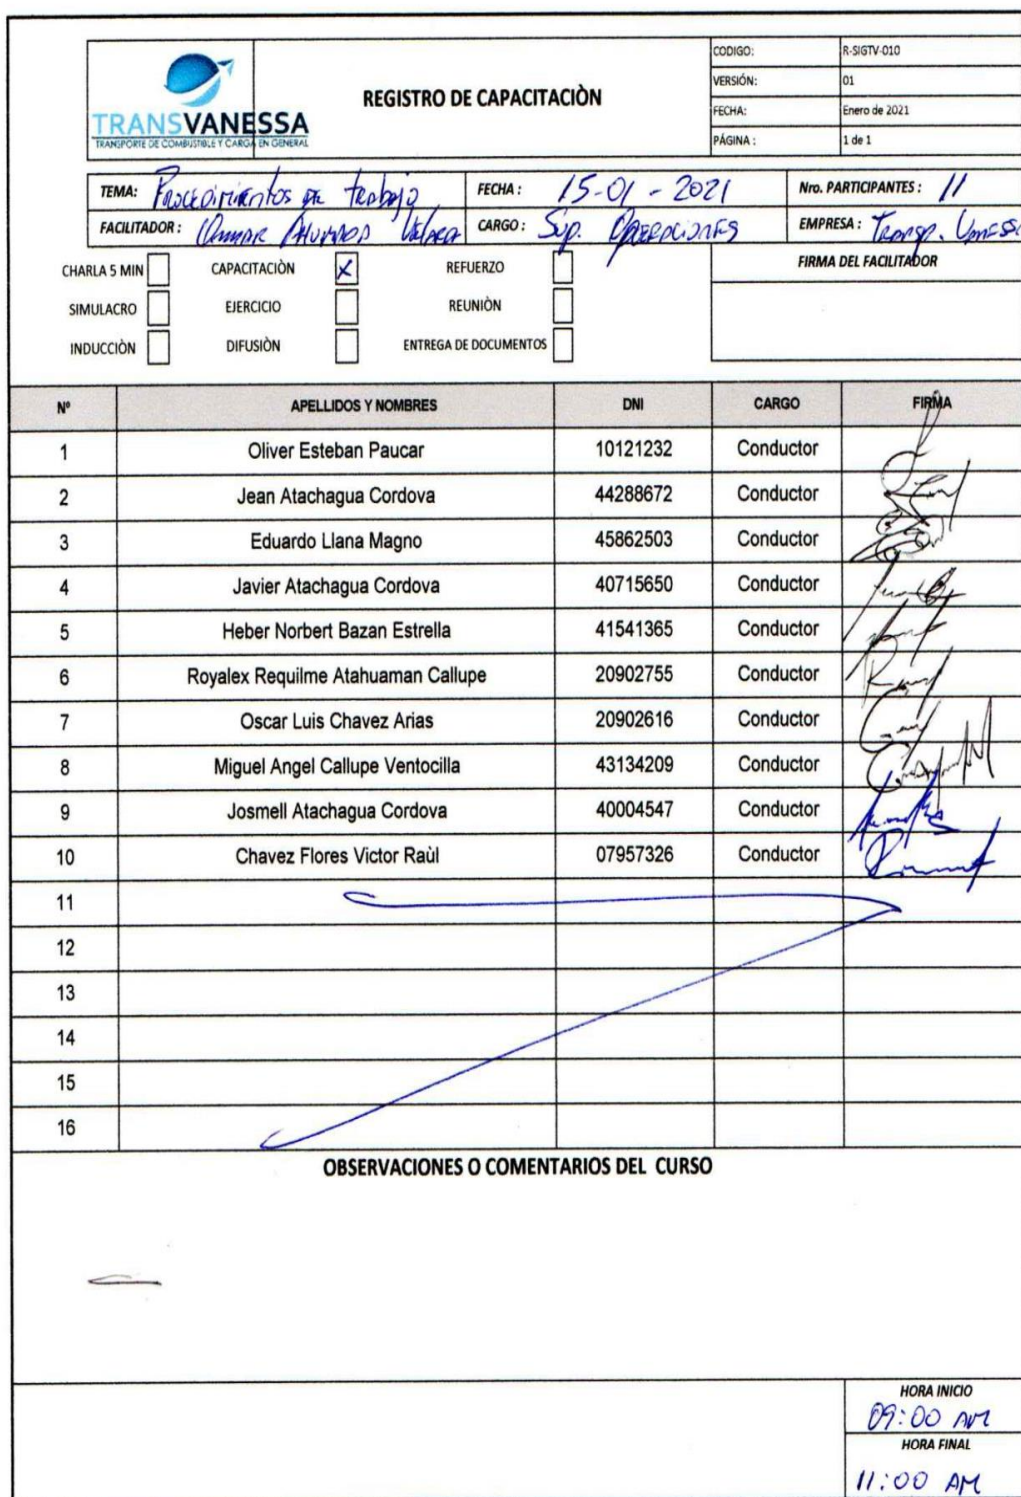 TRANSVANESSA
TRANSPORTE DE COMBUSTIBLE Y CARGA EN GENERAL
REGISTRO DE CAPACITACIÒN
CODIGO: R-SIGTV-010
VERSIÓN: 01
FECHA: Enero de 2021
PÁGINA : 1 de 1
TEMA: Procedimientos de trabajo FECHA : 15-01-2021 Nro. PARTICIPANTES : 11
FACILITADOR : CARGO : Sup. Operaciones EMPRESA : Transp. Vanessa
CHARLA 5 MIN CAPACITACIÒN X REFUERZO FIRMA DEL FACILITADOR
SIMULACRO EJERCICIO REUNIÒN
INDUCCIÒN DIFUSIÒN ENTREGA DE DOCUMENTOS
Nº APELLIDOS Y NOMBRES DNI CARGO FIRMA
1 Oliver Esteban Paucar 10121232 Conductor
2 Jean Atachagua Cordova 44288672 Conductor
3 Eduardo Llana Magno 45862503 Conductor
4 Javier Atachagua Cordova 40715650 Conductor
5 Heber Norbert Bazan Estrella 41541365 Conductor
6 Royalex Requilme Atahuaman Callupe 20902755 Conductor
7 Oscar Luis Chavez Arias 20902616 Conductor
8 Miguel Angel Callupe Ventocilla 43134209 Conductor
9 Josmell Atachagua Cordova 40004547 Conductor
10 Chavez Flores Victor Raùl 07957326 Conductor
11
12
13
14
15
16
OBSERVACIONES O COMENTARIOS DEL CURSO
HORA INICIO
09:00 AM
HORA FINAL
11:00 AM